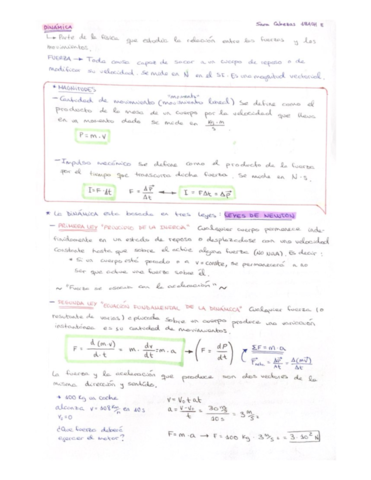 DINÁMICA
↳ Parte de la física que estudia la relación entre las fuerzas y los
movimientos.
FUERZA → Toda causa capaz de sacar a un cuerpo de reposo o de
modificar su velocidad. Se mide en N en el SI. Es una magnitud vectorial.
* MAGNITUDES
- Cantidad de movimiento (movimiento lineal) Se define como el
producto de la masa de un cuerpo por la velocidad que lleva
en un momento dado. Se mide en kg·m/s
F = m·v
- Impulso mecánico Se define como el producto de la fuerza
por el tiempo que transcurre dicha fuerza. Se mide en N·s.
I = F·dt F = Δp/Δt ↔ I = FΔt = Δp
* La DINÁMICA está basada en tres leyes: LEYES DE NEWTON
- PRIMERA LEY "PRINCIPIO DE LA INERCIA" Cualquier cuerpo permanece inde-
finidamente en un estado de reposo o desplazándose con una velocidad
constante hasta que sobre él actúe alguna fuerza. Es decir:
* Si un cuerpo está parado o a v = cte, se permanecerá a no
ser que actúe una fuerza sobre él.
~ "Fuerza se asocia con la aceleración" ~
- SEGUNDA LEY "ECUACIÓN FUNDAMENTAL DE LA DINÁMICA" Cualquier fuerza (o
resultante de varias) aplicada sobre un cuerpo produce una variación
instantánea en su cantidad de movimiento.
F = d(m·v)/d·t = m·dv/dt = m·a → F = dP/dt
ΣF = m·a
= Δp/Δt = Δ(mv)/Δt
La fuerza y la aceleración que produce son dos vectores de la
misma dirección y sentido.
v = v₀ + at
a = v-v₀/t
¿Qué fuerza deberá
ejercer el motor?
F = m·a →